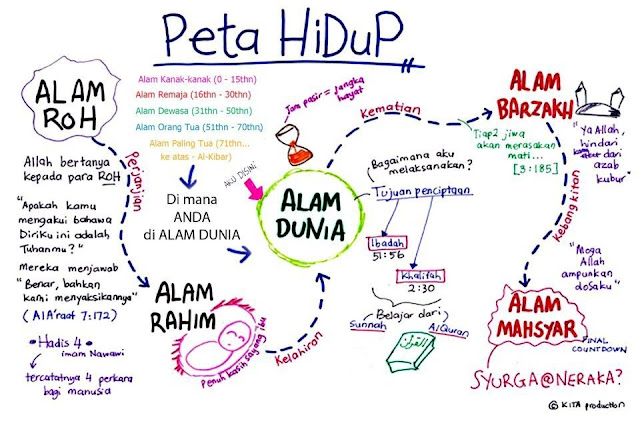 Peta HiDuP
ALAM
ROH
Allah bertanya
kepada para ROH
"Apakah kamu
mengakui bahawa
DiriKu ini adalah
Tuhanmu?"
Mereka menjawab
"Benar, bahkan
kami menyaksikannya"
(Al A'raaf 7:172)
• Hadis 4 •
imam Nawawi
tercatatnya 4 perkara
bagi manusia
Perjanjian
Alam Kanak-kanak (0 - 15thn)
Alam Remaja (16thn - 30thn)
Alam Dewasa (31thn - 50thn)
Alam Orang Tua (51thn - 70thn)
Alam Paling Tua (71thn...
ke atas - Al-Kibar)
Di mana
ANDA
di ALAM DUNIA
AKU DISINI
ALAM
RAHIM
Penuh kasih sayang ibu
Kelahiran
Jam pasir = jangka
hayat
ALAM
DUNIA
Kematian
Bagaimana aku
melaksanakan?
Tujuan penciptaan
Ibadah
51:56
Khalifah
2:30
Belajar dari
Sunnah
AlQuran
القرآن
ALAM
BARZAKH
Tiap2 jiwa
akan merasakan
mati...
[3:185]
"Ya Allah,
hindari
dari
azab
kubur"
Kebangkitan
"Moga
Allah
ampunkan
dosaku"
ALAM
MAHSYAR
FINAL
COUNTDOWN
SYURGA@NERAKA?
© KITA production